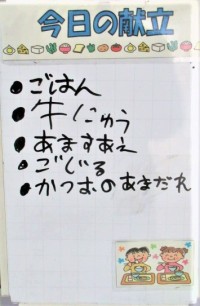 今日の献立
●ごはん
●牛にゅう
●あますあえ
●ごじる
●かつおのあまだれ